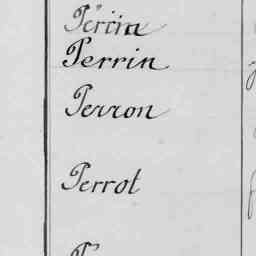 Percin
Perrin
Perron
Perrot